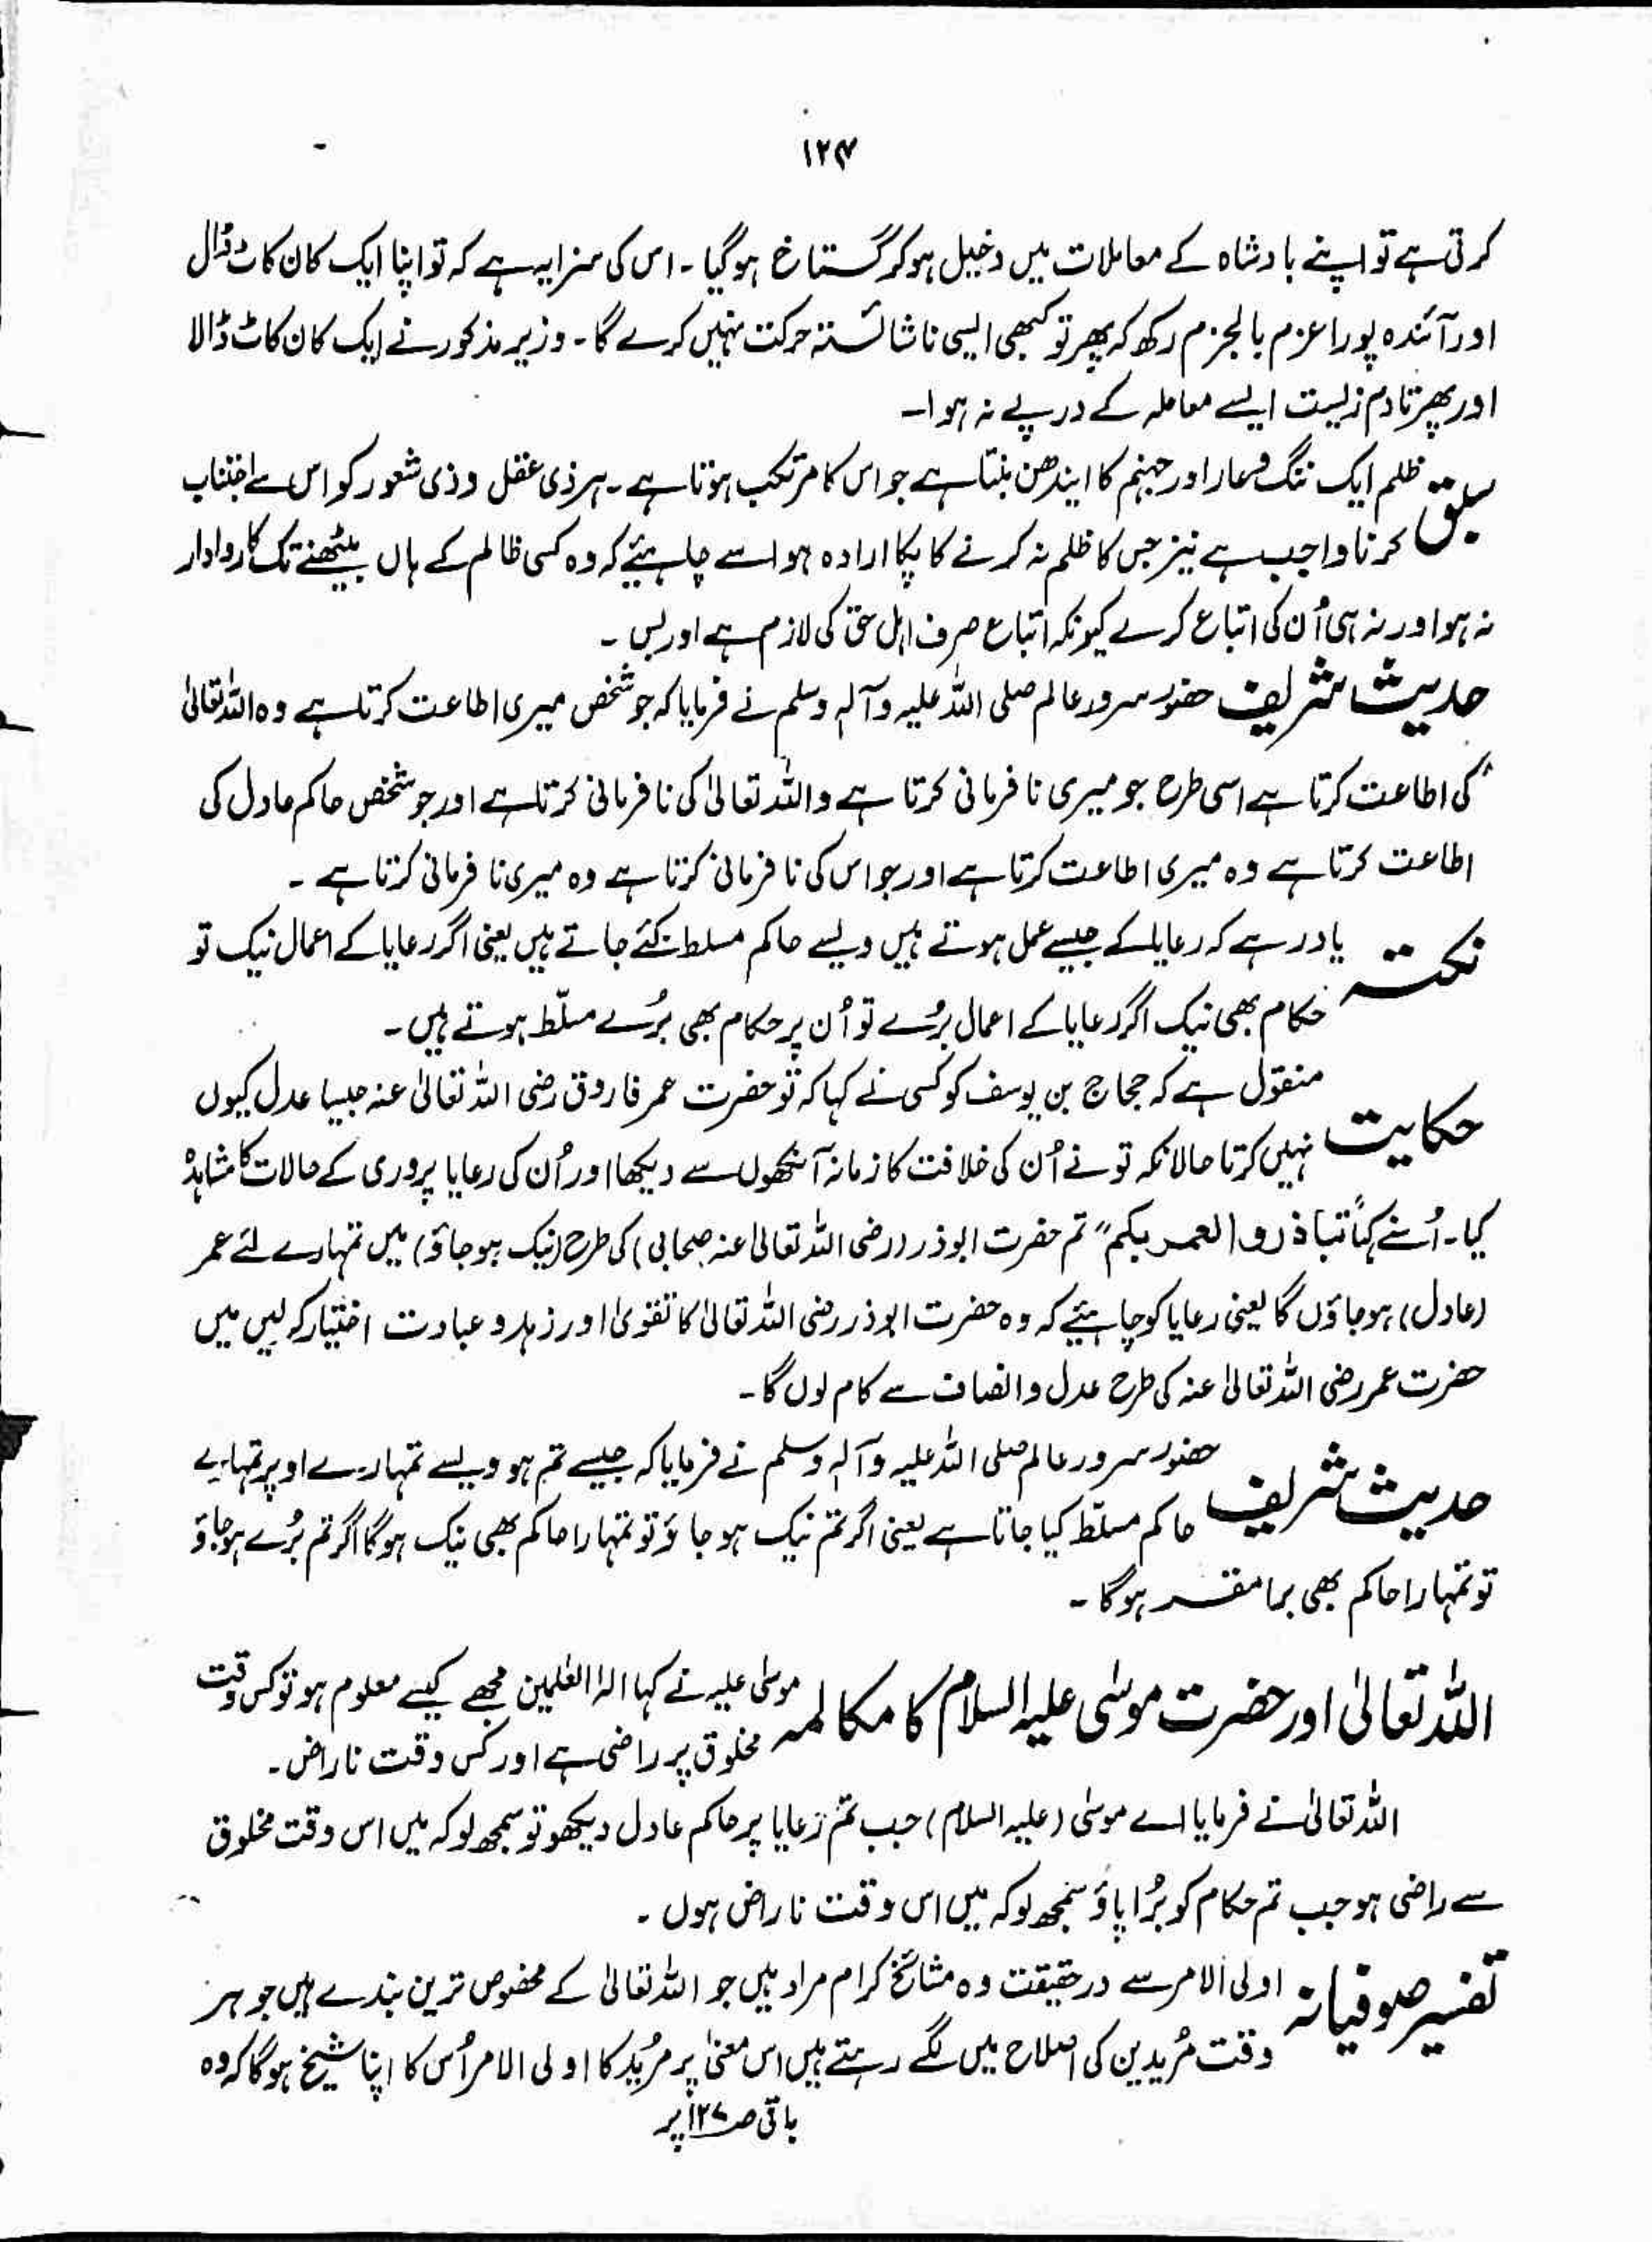 ۱۲۴
کرتی ہے تو اپنے بادشاہ کے معاملات میں دخیل ہوکر گستاخ ہوگیا۔ اس کی سزا یہ ہے کہ تو اپنا ایک کان کاٹ ڈال
اور آئندہ پورا عزم بالجزم رکھ کہ پھر تو کبھی ایسی ناشائستہ حرکت نہیں کرے گا۔ وزیر مذکور نے ایک کان کاٹ ڈالا
اور پھر تا دم زلیست ایسے معاملہ کے درپے نہ ہوا۔
سبق ظلم ایک ننگ و عار اور جہنم کا ایندھن بنتا ہے جو اس کا مرتکب ہوتا ہے۔ ہر ذی عقل و ذی شعور کو اس سے اجتناب
کرنا واجب ہے نیز جس کا ظلم نہ کرنے کا پکا ارادہ ہو اسے چاہیئے کہ وہ کسی ظالم کے ہاں بیٹھنے تک کا روادار
نہ ہو اور نہ ہی اُن کی اتباع کرے کیونکہ اتباع صرف اہل حق کی لازم ہے اور بس ۔
حدیث شریف حضور سرور عالم صلی اللہ علیہ وآلہٖ وسلم نے فرمایا کہ جو شخص میری اطاعت کرتا ہے وہ اللہ تعالیٰ
کی اطاعت کرتا ہے اسی طرح جو میری نافرمانی کرتا ہے و اللہ تعالیٰ کی نافرمانی کرتا ہے اور جو شخص حاکم عادل کی
اطاعت کرتا ہے وہ میری اطاعت کرتا ہے اور جو اس کی نافرمانی کرتا ہے وہ میری نافرمانی کرتا ہے ۔
نکتہ یاد رہے کہ رعایا کے جیسے عمل ہوتے ہیں ویسے حاکم مسلط کئے جاتے ہیں یعنی اگر رعایا کے اعمال نیک تو
حکام بھی نیک اگر رعایا کے اعمال بُرے تو اُن پر حکام بھی بُرے مسلّط ہوتے ہیں۔
حکایت منقول ہے کہ حجاج بن یوسف کو کسی نے کہا کہ تو حضرت عمر فاروق رضی اللہ تعالیٰ عنہ جیسا عدل کیوں
نہیں کرتا حالانکہ تو نے اُن کی خلافت کا زمانہ آنکھوں سے دیکھا اور اُن کی رعایا پروری کے حالات کا مشاہدہ
کیا۔ اُسنے کہا "تباذروا لعمر بکم" تم حضرت ابوذر (رضی اللہ تعالیٰ عنہ صحابی) کی طرح (نیک ہوجاؤ) میں تمہارے لئے عمر
(عادل) ہوجاؤں گا یعنی رعایا کو چاہیئے کہ وہ حضرت ابوذر رضی اللہ تعالیٰ کا تقویٰ اور زہد و عبادت اختیار کر لیں میں
حضرت عمر رضی اللہ تعالیٰ عنہ کی طرح عدل و انصاف سے کام لوں گا۔
حدیث شریف حضور سرور عالم صلی اللہ علیہ وآلہٖ وسلم نے فرمایا کہ جیسے تم ہو ویسے تمہارے اوپر تمہارے
حاکم مسلّط کیا جاتا ہے یعنی اگر تم نیک ہو جاؤ تو تمہارا حاکم بھی نیک ہوگا اگر تم بُرے ہوجاؤ
تو تمہارا حاکم بھی برا مقرر ہوگا ۔
اللہ تعالیٰ اور حضرت موسٰی علیہ السلام کا مکالمہ موسٰی علیہ نے کہا الٰہ العٰلمین مجھے کیسے معلوم ہو تو کس وقت
مخلوق پر راضی ہے اور کس وقت ناراض۔
اللہ تعالیٰ نے فرمایا اے موسٰی (علیہ السلام) جب تم رعایا پر حاکم عادل دیکھو تو سمجھ لو کہ میں اس وقت مخلوق
سے راضی ہو جب تم حکام کو بُرا پاؤ سمجھ لو کہ میں اس وقت ناراض ہوں ۔
تفسیر صوفیانہ اولی الامر سے درحقیقت وہ مشائخ کرام مراد ہیں جو اللہ تعالیٰ کے مخصوص ترین بندے ہیں جو ہر
وقت مُریدین کی اصلاح میں لگے رہتے ہیں اس معنیٰ پر مُرید کا اولی الامر اُس کا اپنا شیخ ہوگا کہ وہ
باقی صـ ۱۲۷ پر